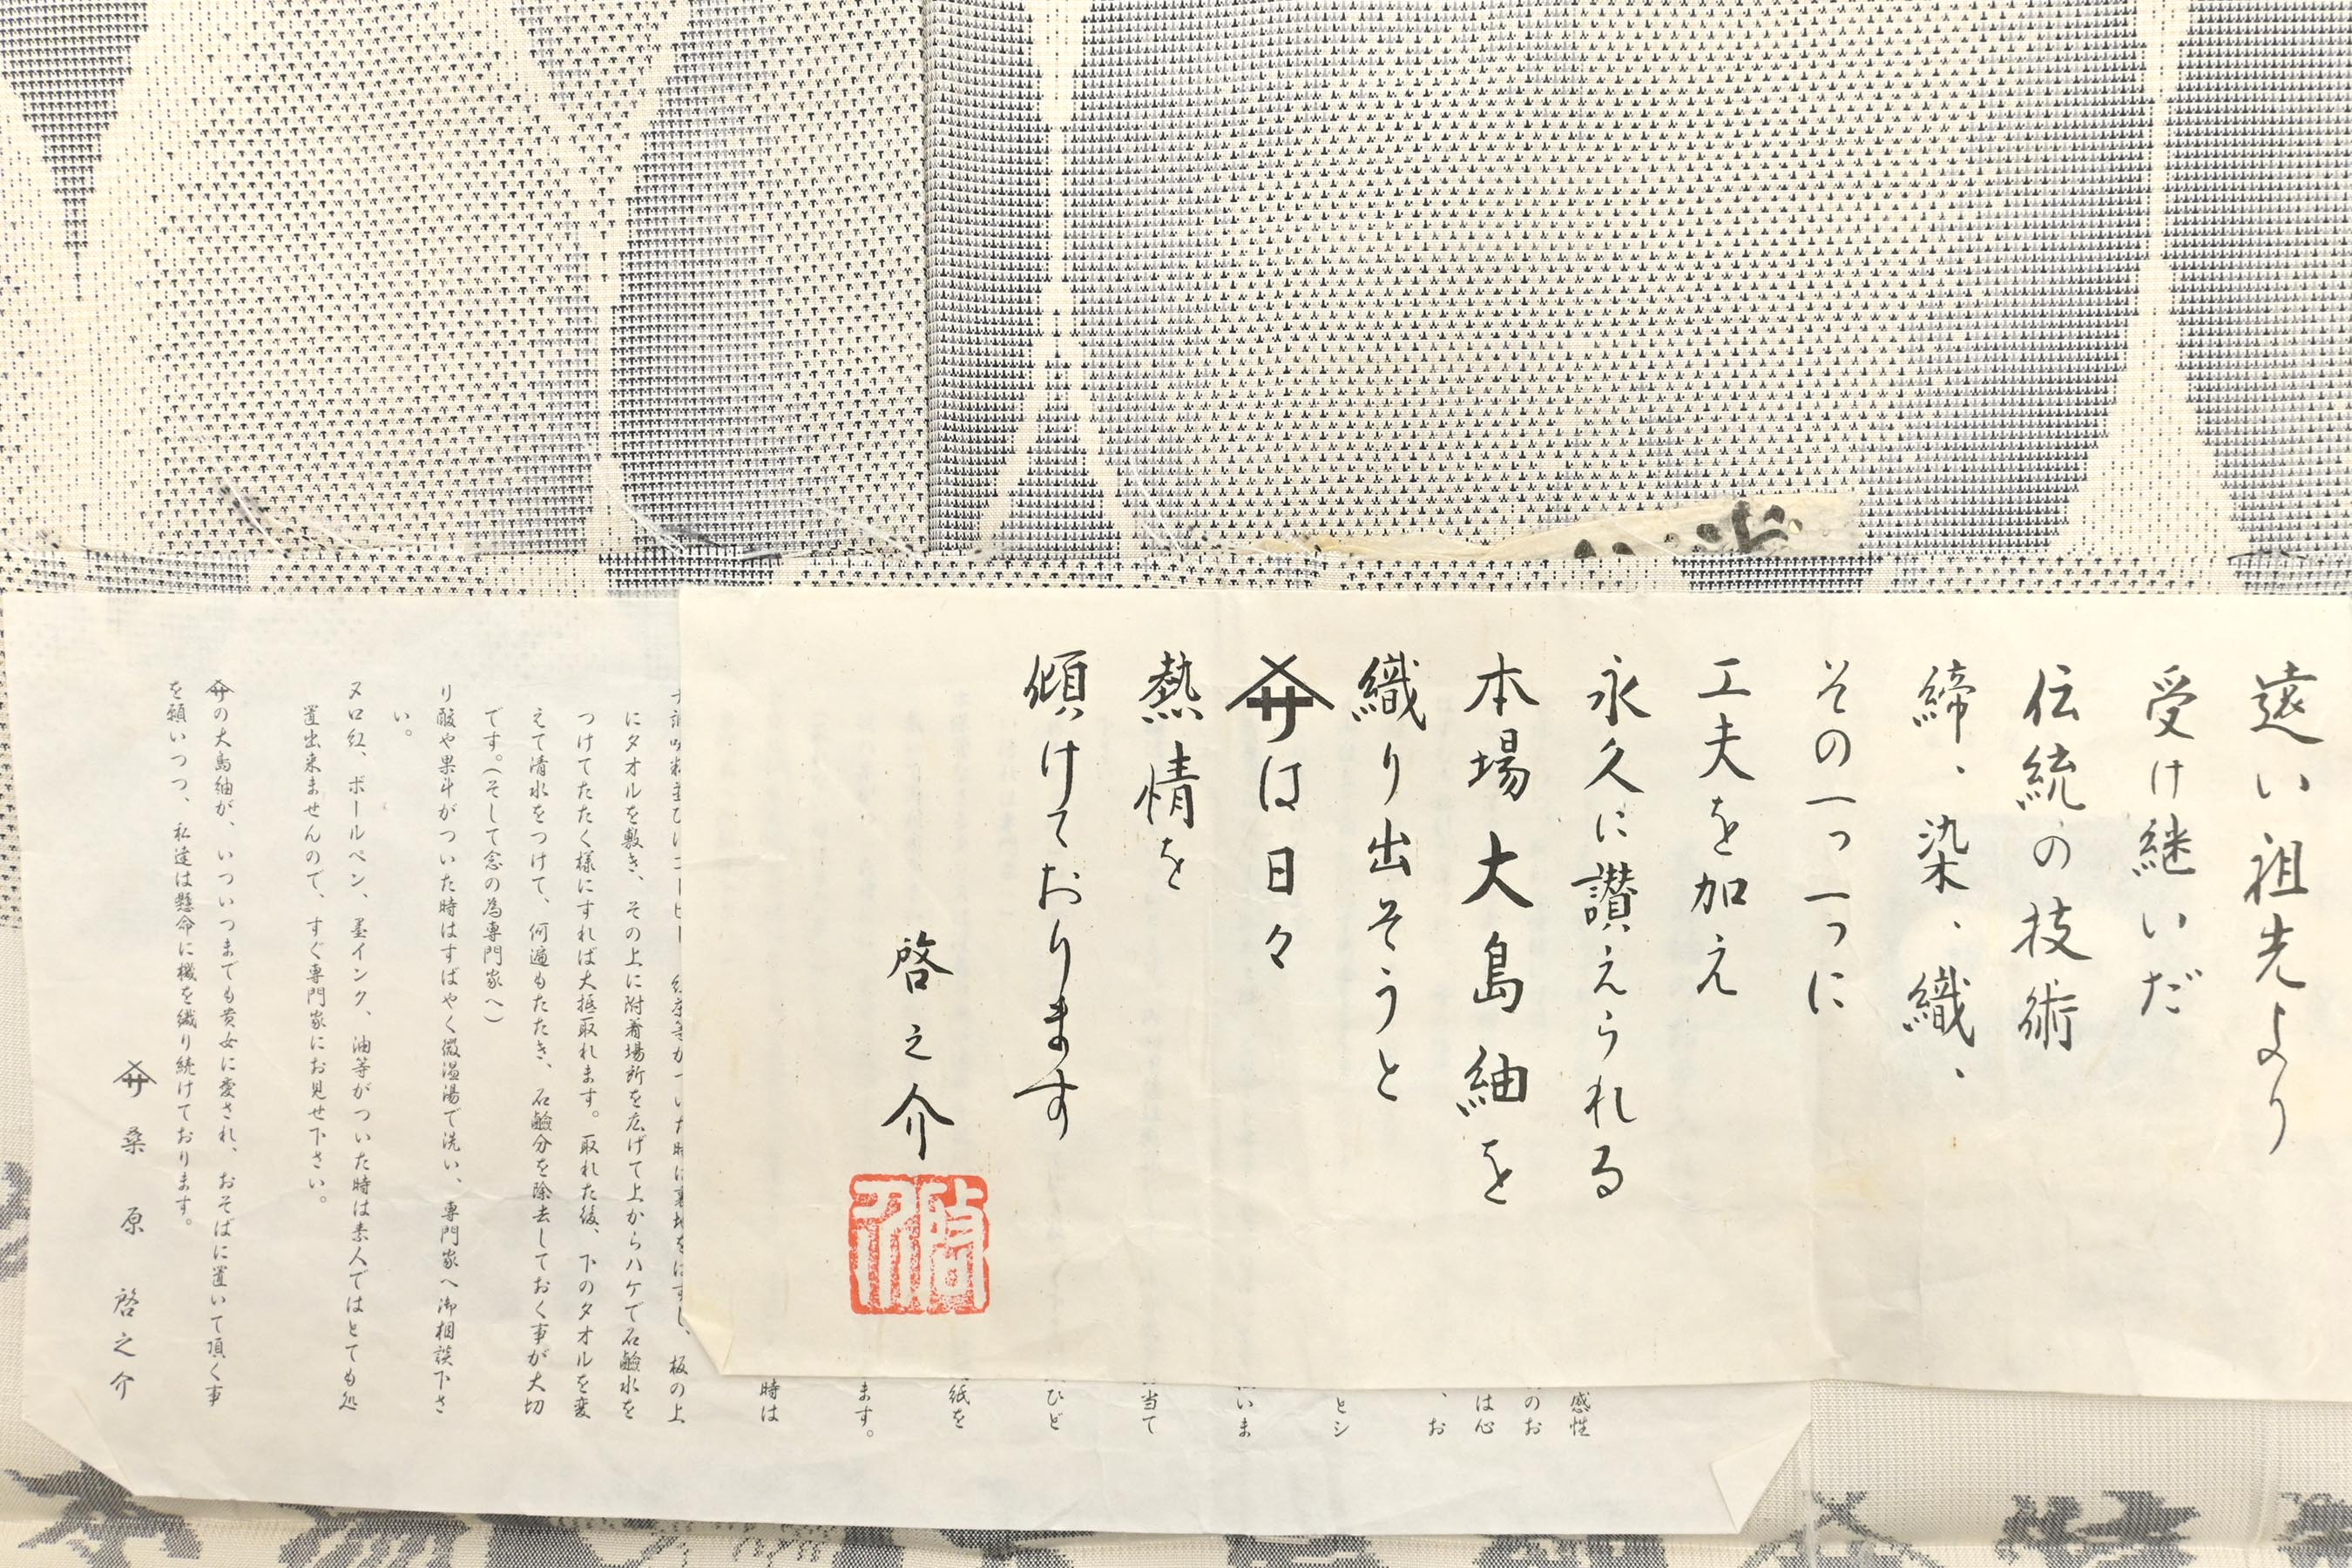 遠い祖先より
受け継いだ
伝統の技術
締、染、織、
その一つ一つに
工夫を加え
永久に讃えられる
本場大島紬を
織り出そうと
は日々
熱情を
傾けております
啓之介
感性
のお
は心
、お
とシ
いま
当て
ひど
紙を
ます。
時は
板の上
にタオルを敷き、その上に附着場所を広げて上からハケで石鹼水を
つけてたたく様にすれば大抵取れます。取れた後、下のタオルを変
えて清水をつけて、何遍もたたき、石鹼分を除去しておく事が大切
です。(そして念の為専門家へ)
り酸や果汁がついた時はすばやく微温湯で洗い、専門家へ御相談下さ
い。
ヌロ紅、ボールペン、墨インク、油等がついた時は素人ではとても処
置出来ませんので、すぐ専門家にお見せ下さい。
の大島紬が、いついつまでも貴女に愛され、おそばに置いて頂く事
を願いつつ、私達は懸命に機を織り続けております。
桑原啓之介